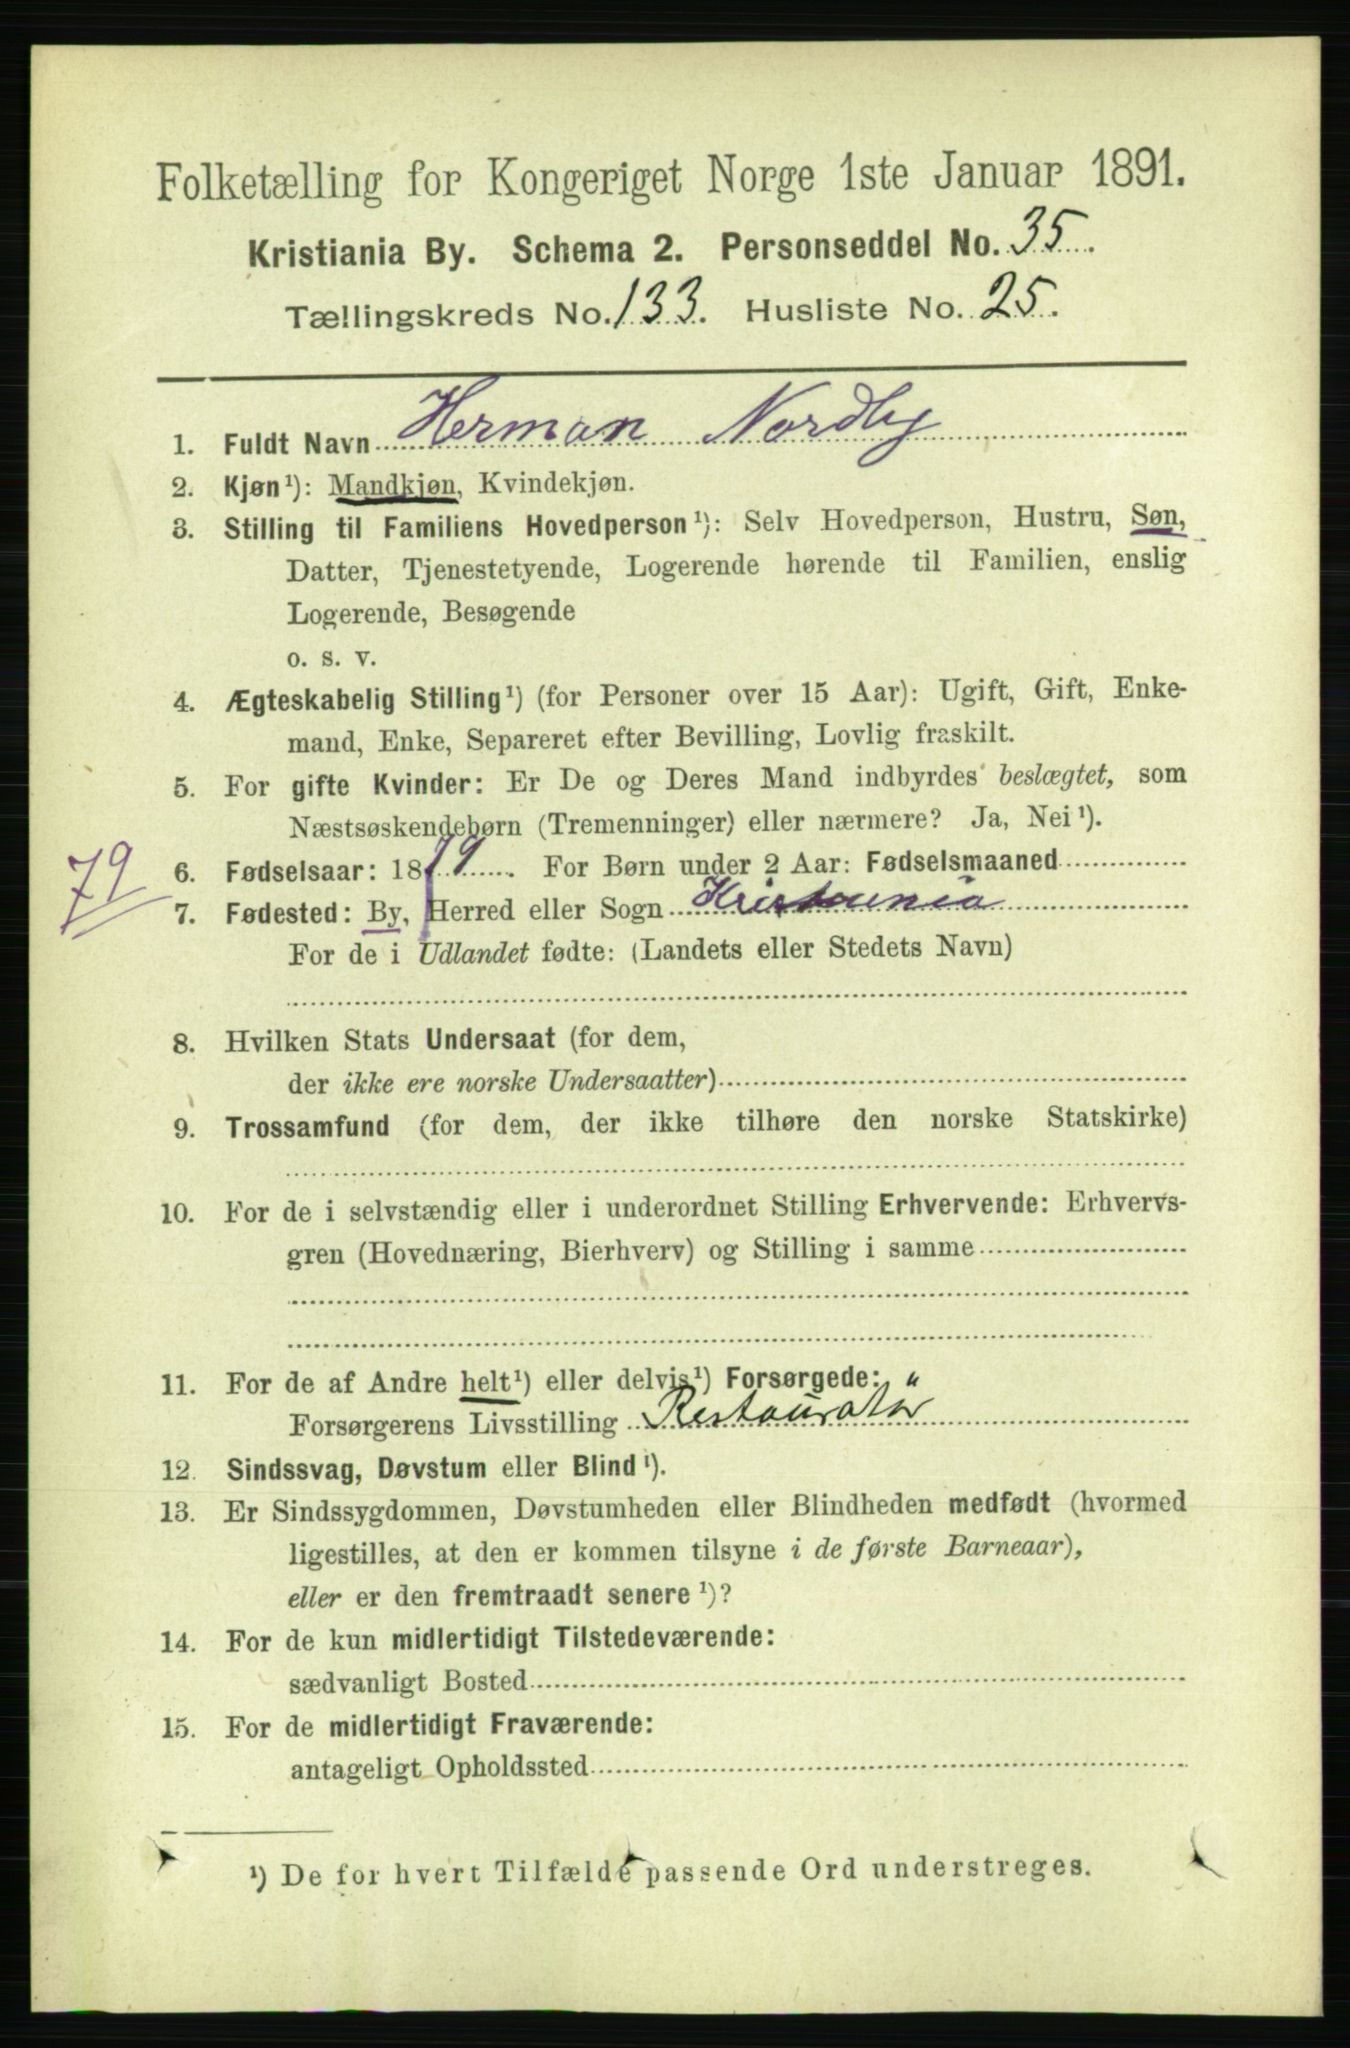 Folketælling for Kongeriget Norge 1ste Januar 1891.
Kristiania By. Schema 2. Personseddel No. 35.
Tællingskreds No. 133. Husliste No. 25.
1. Fuldt Navn Herman Nordby
2. Kjøn¹): Mandkjøn, Kvindekjøn.
3. Stilling til Familiens Hovedperson¹): Selv Hovedperson, Hustru, Søn,
Datter, Tjenestetyende, Logerende hørende til Familien, enslig
Logerende, Besøgende
o. s. v.
4. Ægteskabelig Stilling¹) (for Personer over 15 Aar): Ugift, Gift, Enke-
mand, Enke, Separeret efter Bevilling, Lovlig fraskilt.
5. For gifte Kvinder: Er De og Deres Mand indbyrdes beslægtet, som
Næstsøskendebørn (Tremenninger) eller nærmere? Ja, Nei¹).
79
6. Fødselsaar: 1879. For Børn under 2 Aar: Fødselsmaaned
7. Fødested: By, Herred eller Sogn Kristiania
For de i Udlandet fødte: (Landets eller Stedets Navn)
8. Hvilken Stats Undersaat (for dem,
der ikke ere norske Undersaatter)
9. Trossamfund (for dem, der ikke tilhøre den norske Statskirke)
10. For de i selvstændig eller i underordnet Stilling Erhvervende: Erhvervs-
gren (Hovednæring, Bierhverv) og Stilling i samme
11. For de af Andre helt¹) eller delvis¹) Forsørgede: "
Forsørgerens Livsstilling Restauratør
12. Sindssvag, Døvstum eller Blind¹).
13. Er Sindssygdommen, Døvstumheden eller Blindheden medfødt (hvormed
ligestilles, at den er kommen tilsyne i de første Barneaar),
eller er den fremtraadt senere¹)?
14. For de kun midlertidigt Tilstedeværende:
sædvanligt Bosted
15. For de midlertidigt Fraværende:
antageligt Opholdssted
¹) De for hvert Tilfælde passende Ord understreges.